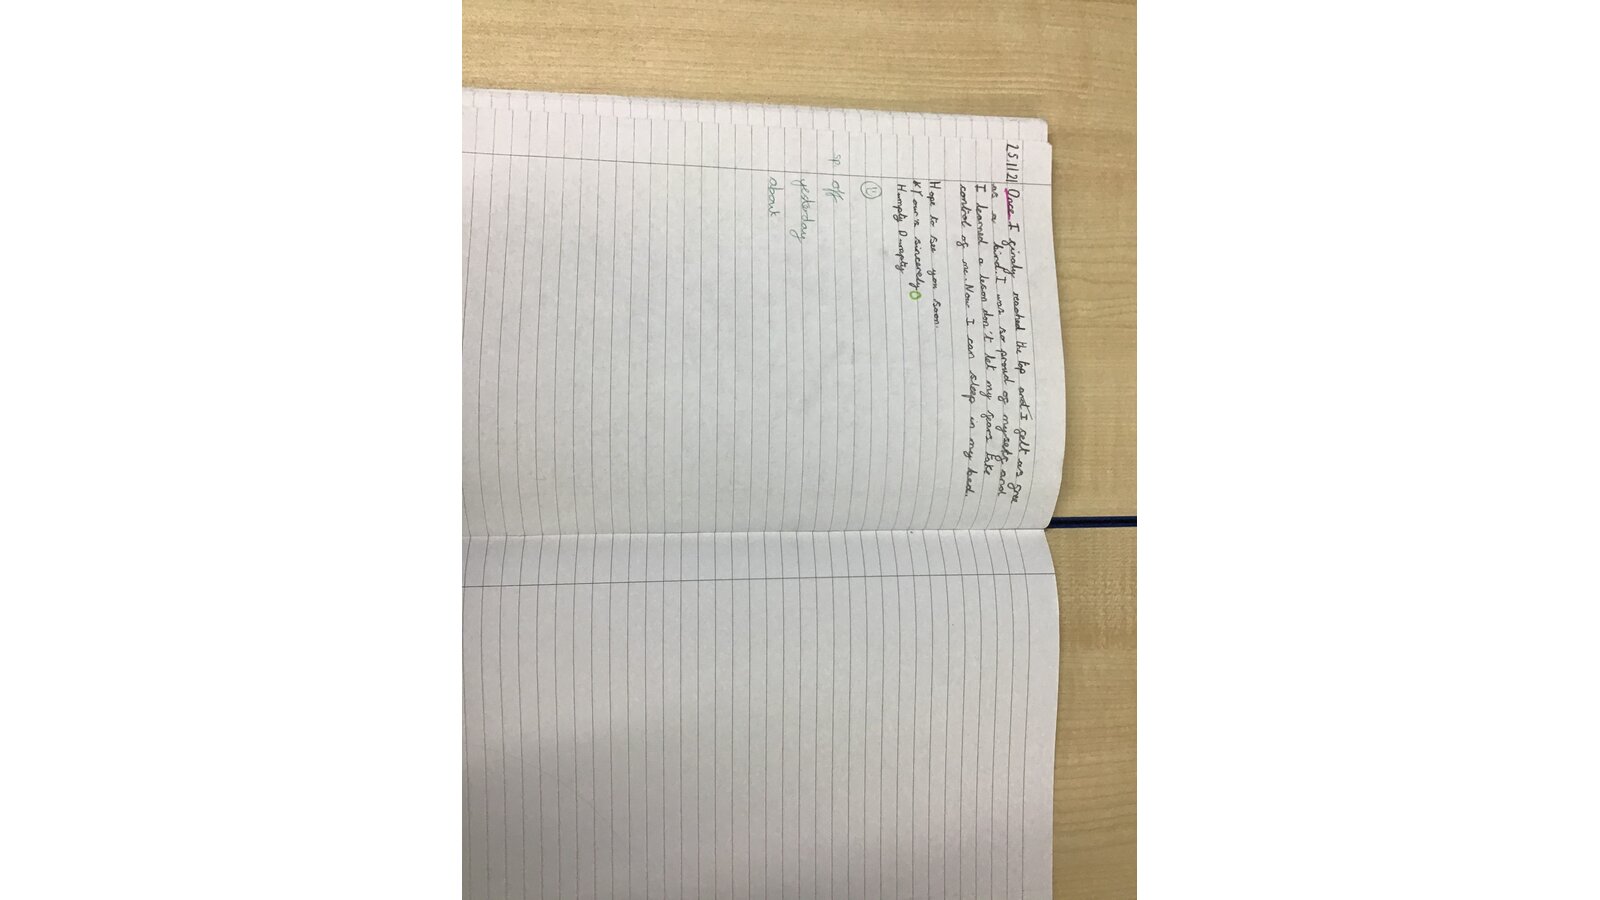 25.11.21 Once I finaly reached the top and I felt as free
as a bird. I was so proud of myself and
I learned a leson don't let my fears take
control of me. Now I can sleep in my bed.
Hope to see you soon.
Yours sincerely
Humpty Dumpty
sp off
yesterday
about